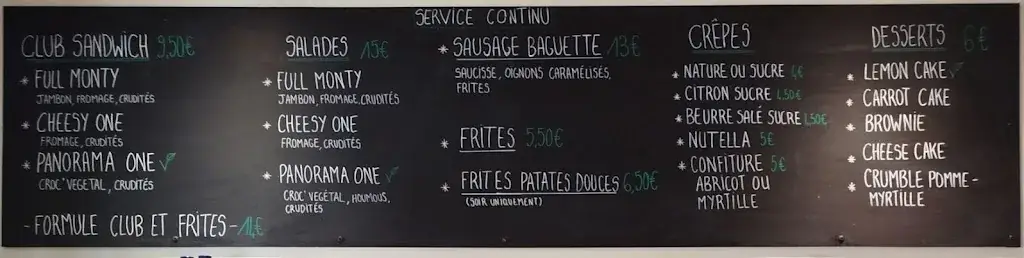 SERVICE CONTINU
CLUB SANDWICH 9,50€
* FULL MONTY
JAMBON, FROMAGE, CRUDITÉS
* CHEESY ONE
FROMAGE, CRUDITÉS
* PANORAMA ONE
CROC'VEGETAL, CRUDITÉS
- FORMULE CLUB ET FRITES - 14€
SALADES 15€
* FULL MONTY
JAMBON, FROMAGE, CRUDITÉS
* CHEESY ONE
FROMAGE, CRUDITÉS
* PANORAMA ONE
CROC'VÉGÉTAL, HOUMOUS,
CRUDITÉS
* SAUSAGE BAGUETTE 13€
SAUCISSE, OIGNONS CARAMÉLISÉS,
FRITES
* FRITES 5,50€
* FRITES PATATES DOUCES 6,50€
(SOIR UNIQUEMENT)
CRÊPES
* NATURE OU SUCRE 4€
* CITRON SUCRE 4,50€
* BEURRE SALÉ SUCRE 4,50€
* NUTELLA 5€
* CONFITURE 5€
ABRICOT OU
MYRTILLE
DESSERTS 6€
* LEMON CAKE
* CARROT CAKE
* BROWNIE
* CHEESE CAKE
* CRUMBLE POMME-
MYRTILLE